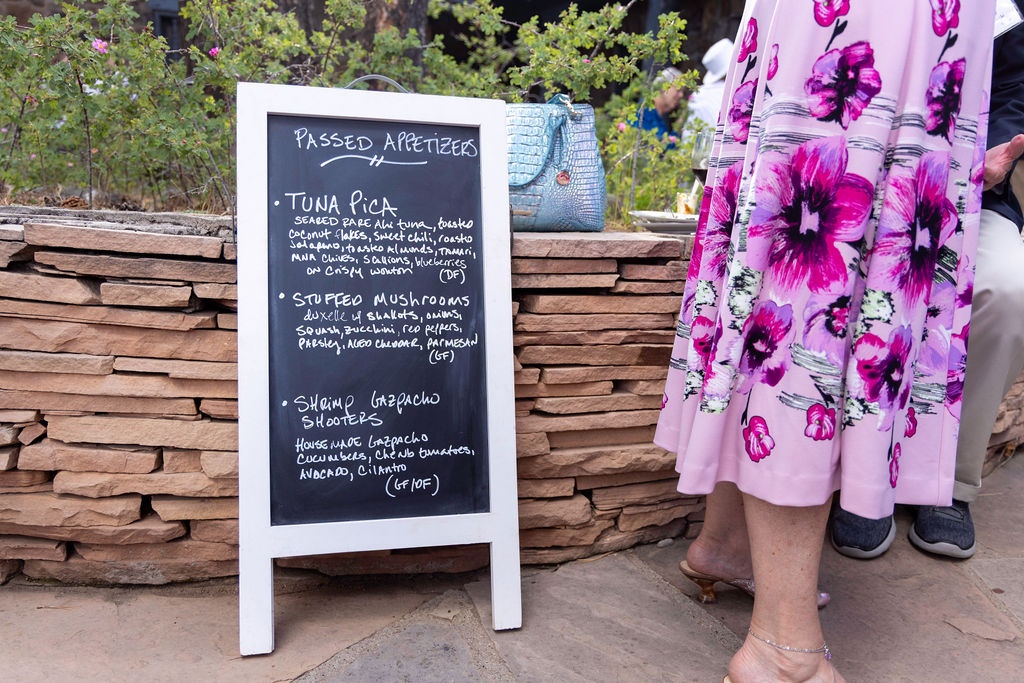 PASSED APPETIZERS
• TUNA PICA
SEARED RARE AHI TUNA, toasted
coconut flakes, sweet chili, roasted
Jalapeno, toasted almonds, TAMARI,
chives, Scallions, blueberries
ON CRISPY wonton
(DF)
• STUFFED MUSHROOMS
duxelle w/ shallots, onions,
SQUASH, zucchini, red peppers,
PARSLEY, AGED CHEDDAR, PARMESAN
(GF)
• SHRIMP GAZPACHO
SHOOTERS
HOUSEMADE GAZPACHO
CUCUMBERS, CHERUB tomatoes,
AVOCADO, CILANTRO
(GF/DF)